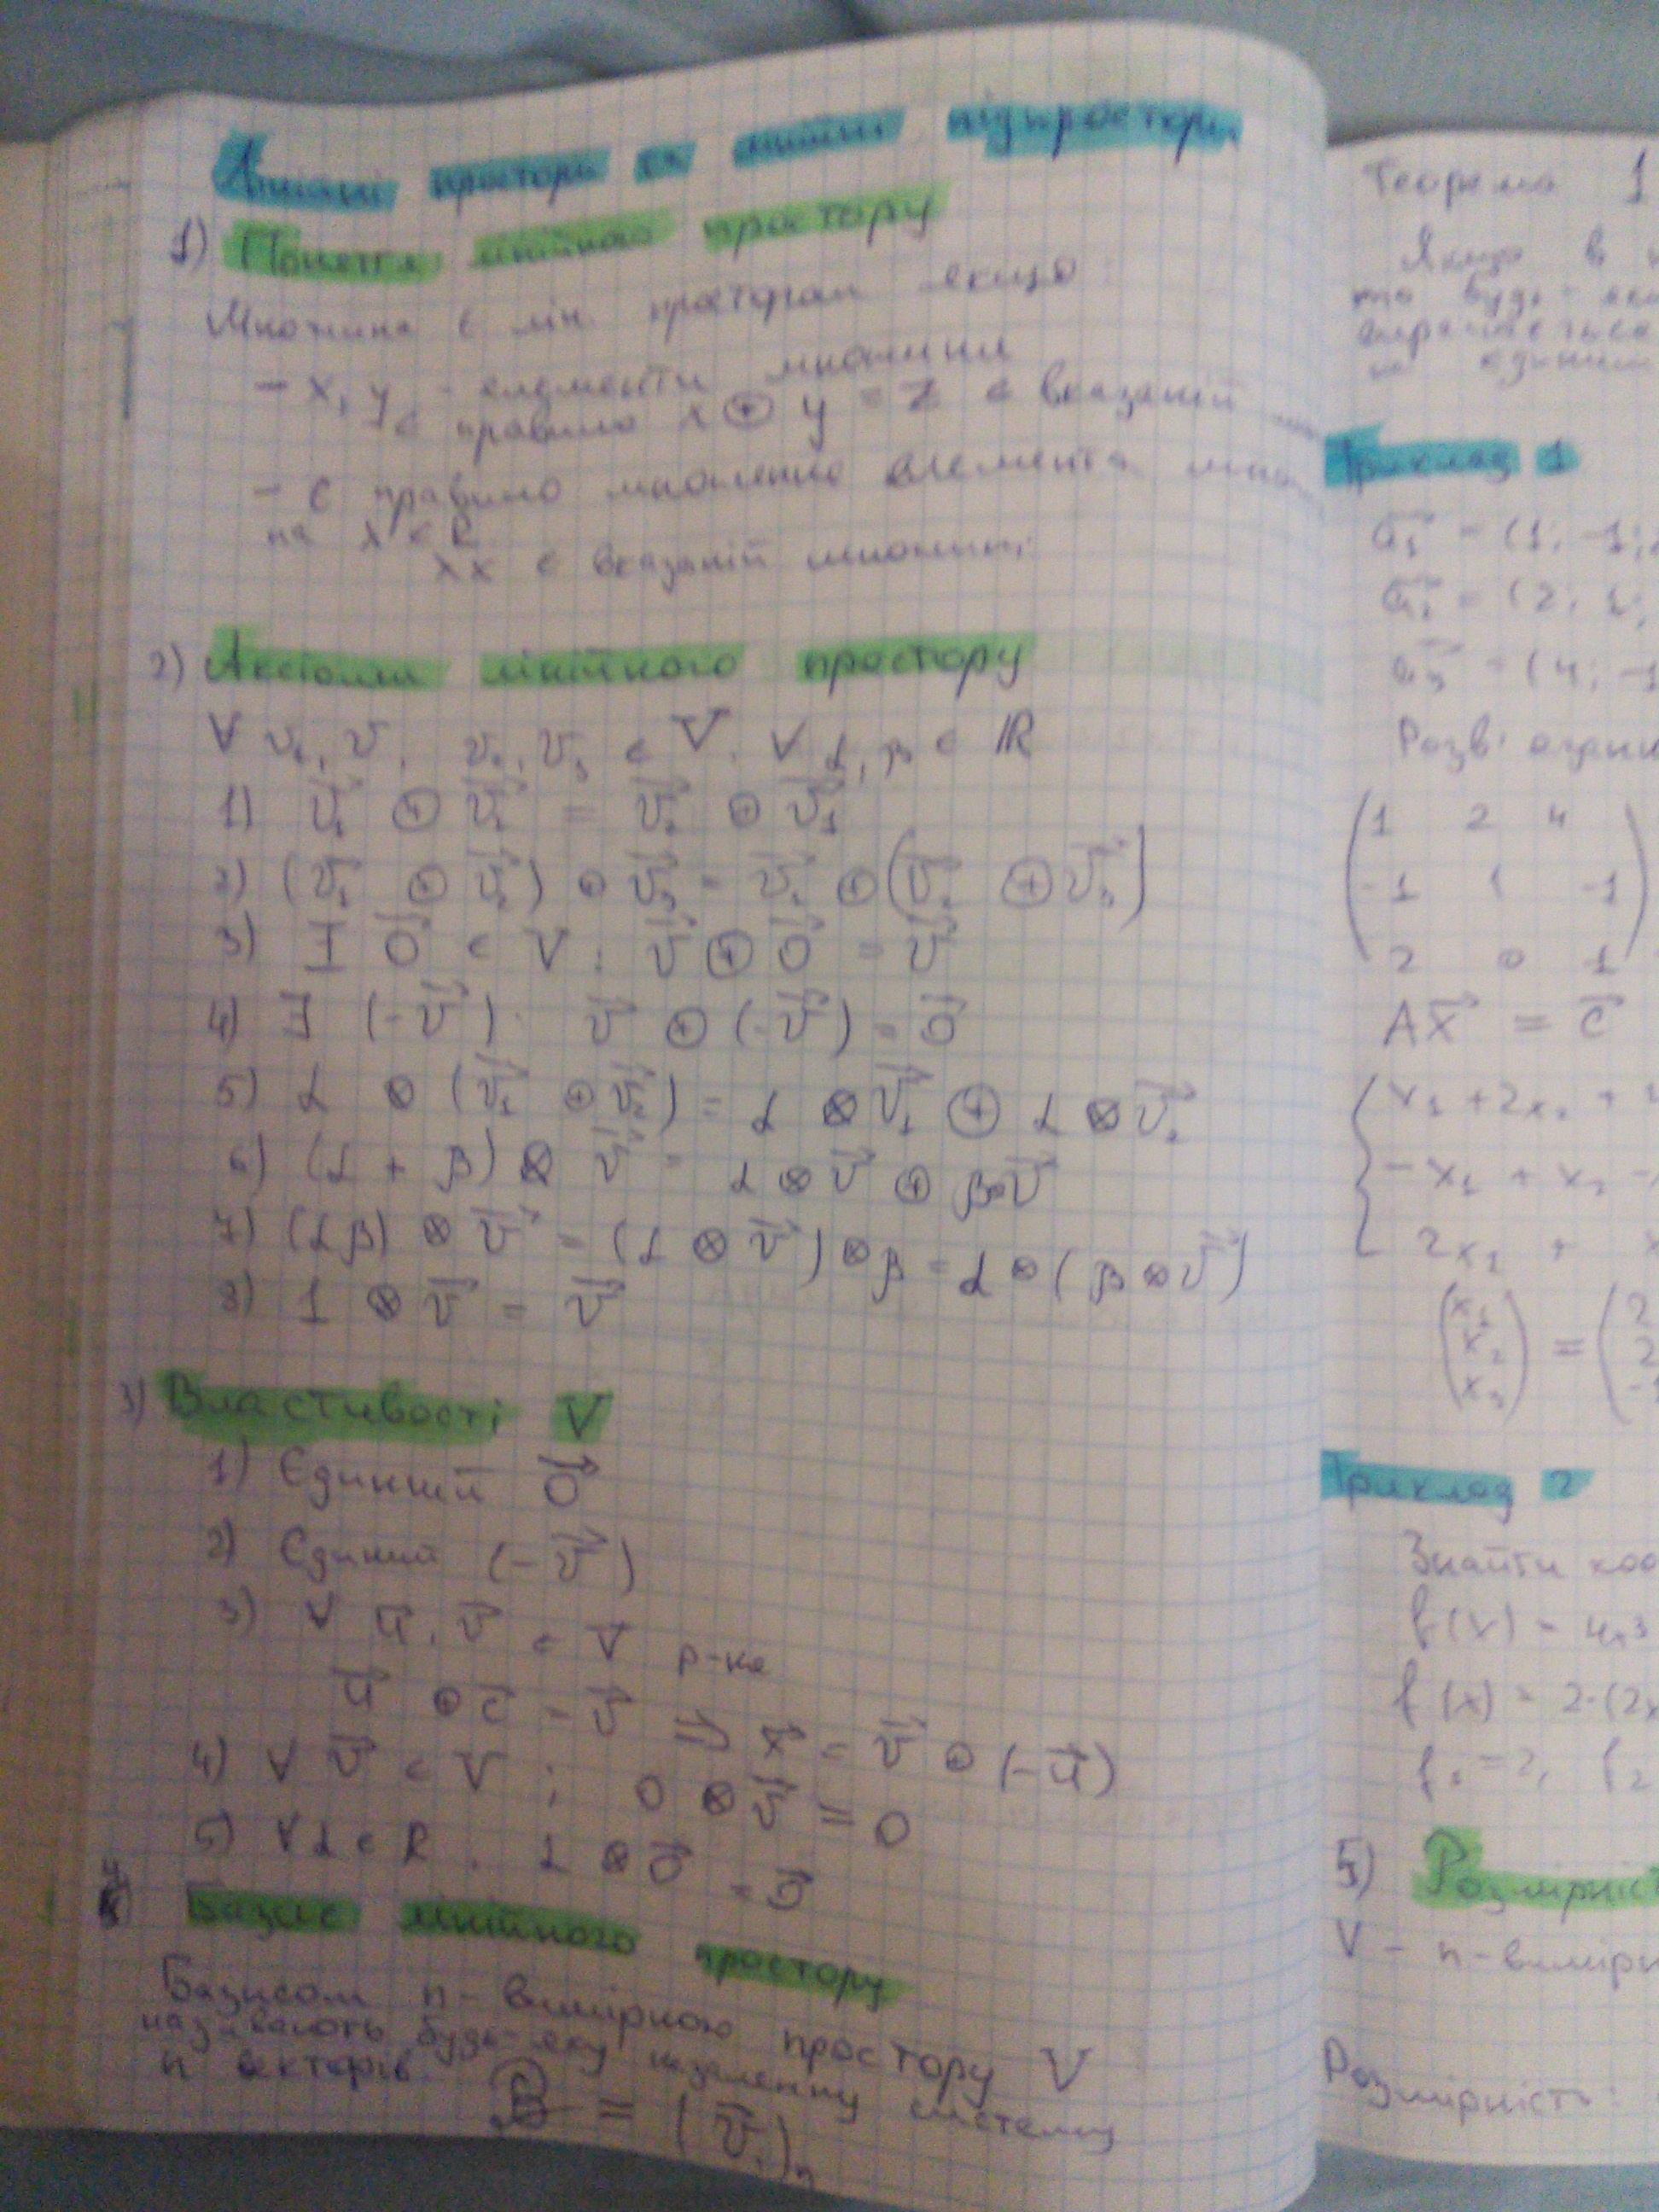 Лінійні простори та лінійні підпростори
1) Поняття лінійного простору
Множина є лін. простором якщо:
- x, y - елементи множини
є правило x ⊕ y = z ∈ вказаній
- Є правило множення елемента
на λ ∈ R
λx ∈ вказаній множині
2) Аксіоми лінійного простору
∀ v₁, v₂, v₃ ∈ V, ∀ α, β ∈ ℝ
1) v⃗₁ ⊕ v⃗₂ = v⃗₂ ⊕ v⃗₁
2) (v⃗₁ ⊕ v⃗₂) ⊕ v⃗₃ = v⃗₁ ⊕ (v⃗₂ ⊕ v⃗₃)
3) ∃ 0⃗ ∈ V : v⃗ ⊕ 0⃗ = v⃗
4) ∃ (-v⃗) : v⃗ ⊕ (-v⃗) = 0⃗
5) α ⊗ (v⃗₁ ⊕ v⃗₂) = α ⊗ v⃗₁ ⊕ α ⊗ v⃗₂
6) (α + β) ⊗ v⃗ = α ⊗ v⃗ ⊕ β ⊗ v⃗
7) (αβ) ⊗ v⃗ = (α ⊗ v⃗) ⊗ β = α ⊗ (β ⊗ v⃗)
8) 1 ⊗ v⃗ = v⃗
3) Властивості V
1) Єдиний 0⃗
2) Єдиний (-v⃗)
3) ∀ u⃗, v⃗ ∈ V р-ня
u⃗ ⊕ = v⃗ ⇒ x⃗ = v⃗ ⊕ (-u⃗)
4) ∀ v⃗ ∈ V ; 0 ⊗ v⃗ = 0
5) ∀ α ∈ R . α ⊗ 0⃗ = 0⃗
4) Базис лінійного простору
Базисом n-вимірного простору V
називають будь-яку незалежну систему
n векторів
B = (v⃗ᵢ)ₙ
Теорема 1
Якщо в
єдиним
Приклад 1
a⃗₁ = (1; -1;
a⃗₂ = (2; 1;
a⃗₃ = (4; -1
(1 2 4
-1 1 -1
2 0 1)
Ax⃗ = c⃗
{x₁ + 2x₂ +
-x₁ + x₂ -
2x₁ +
(x₁
x₂ = (2
x₃) 2
-1
Приклад 2
Знайти коо
f(x) = 4x³
f(x) = 2·(2x
f₁ = 2, f₂
5) Розмірніст
V - n-вимірн
Розмірність: